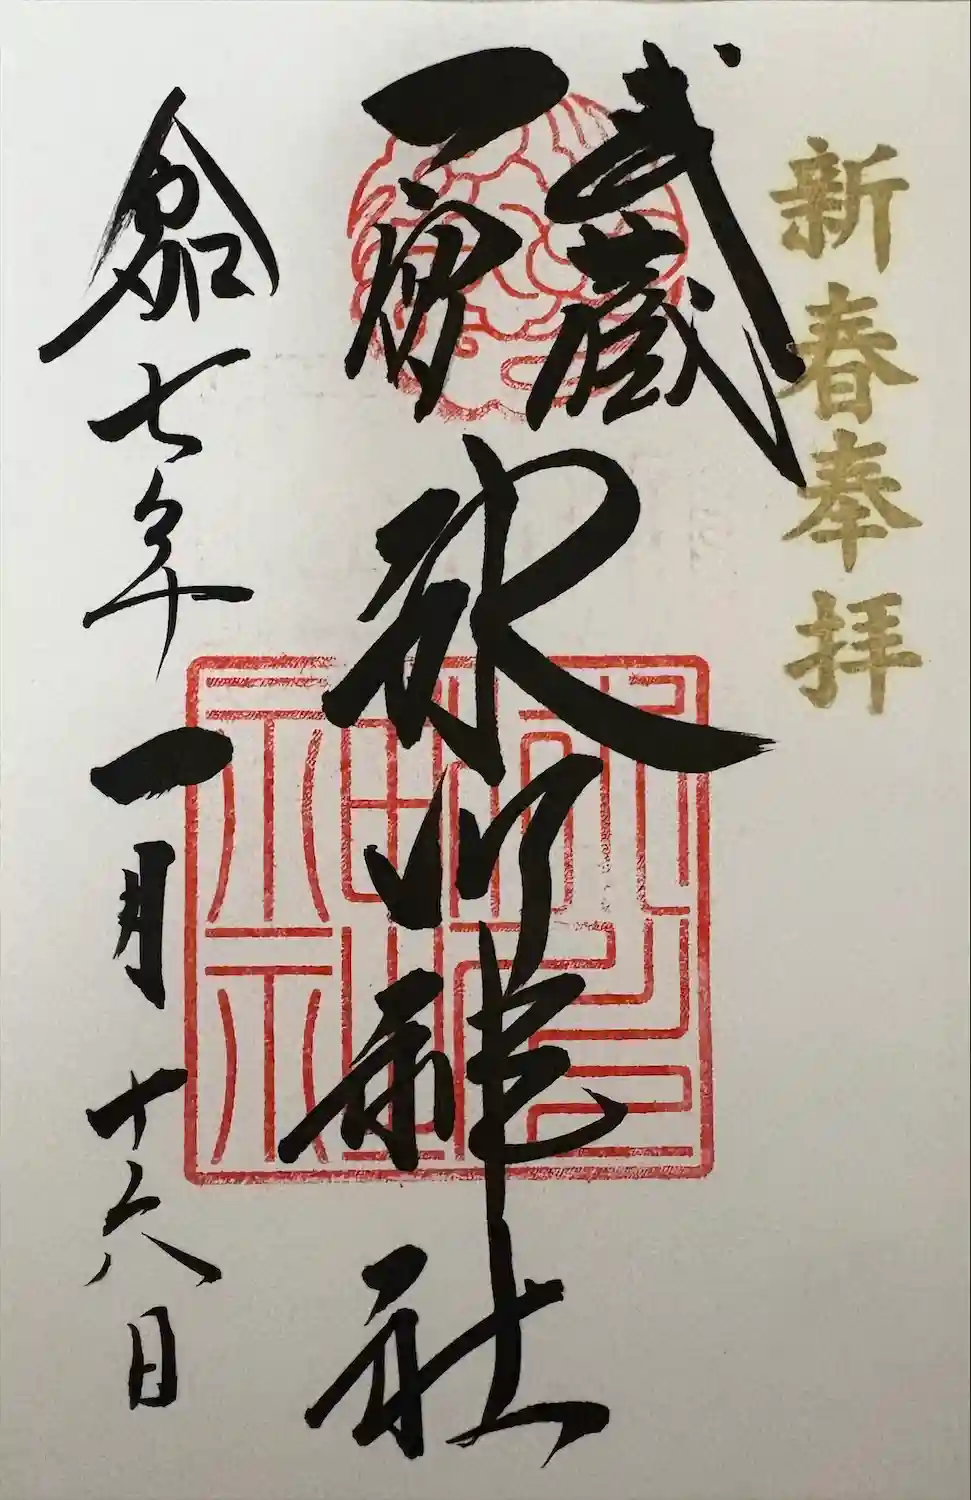 新春奉拝
武蔵
一宮
氷川神社
令和七年一月十六日
氷川神社